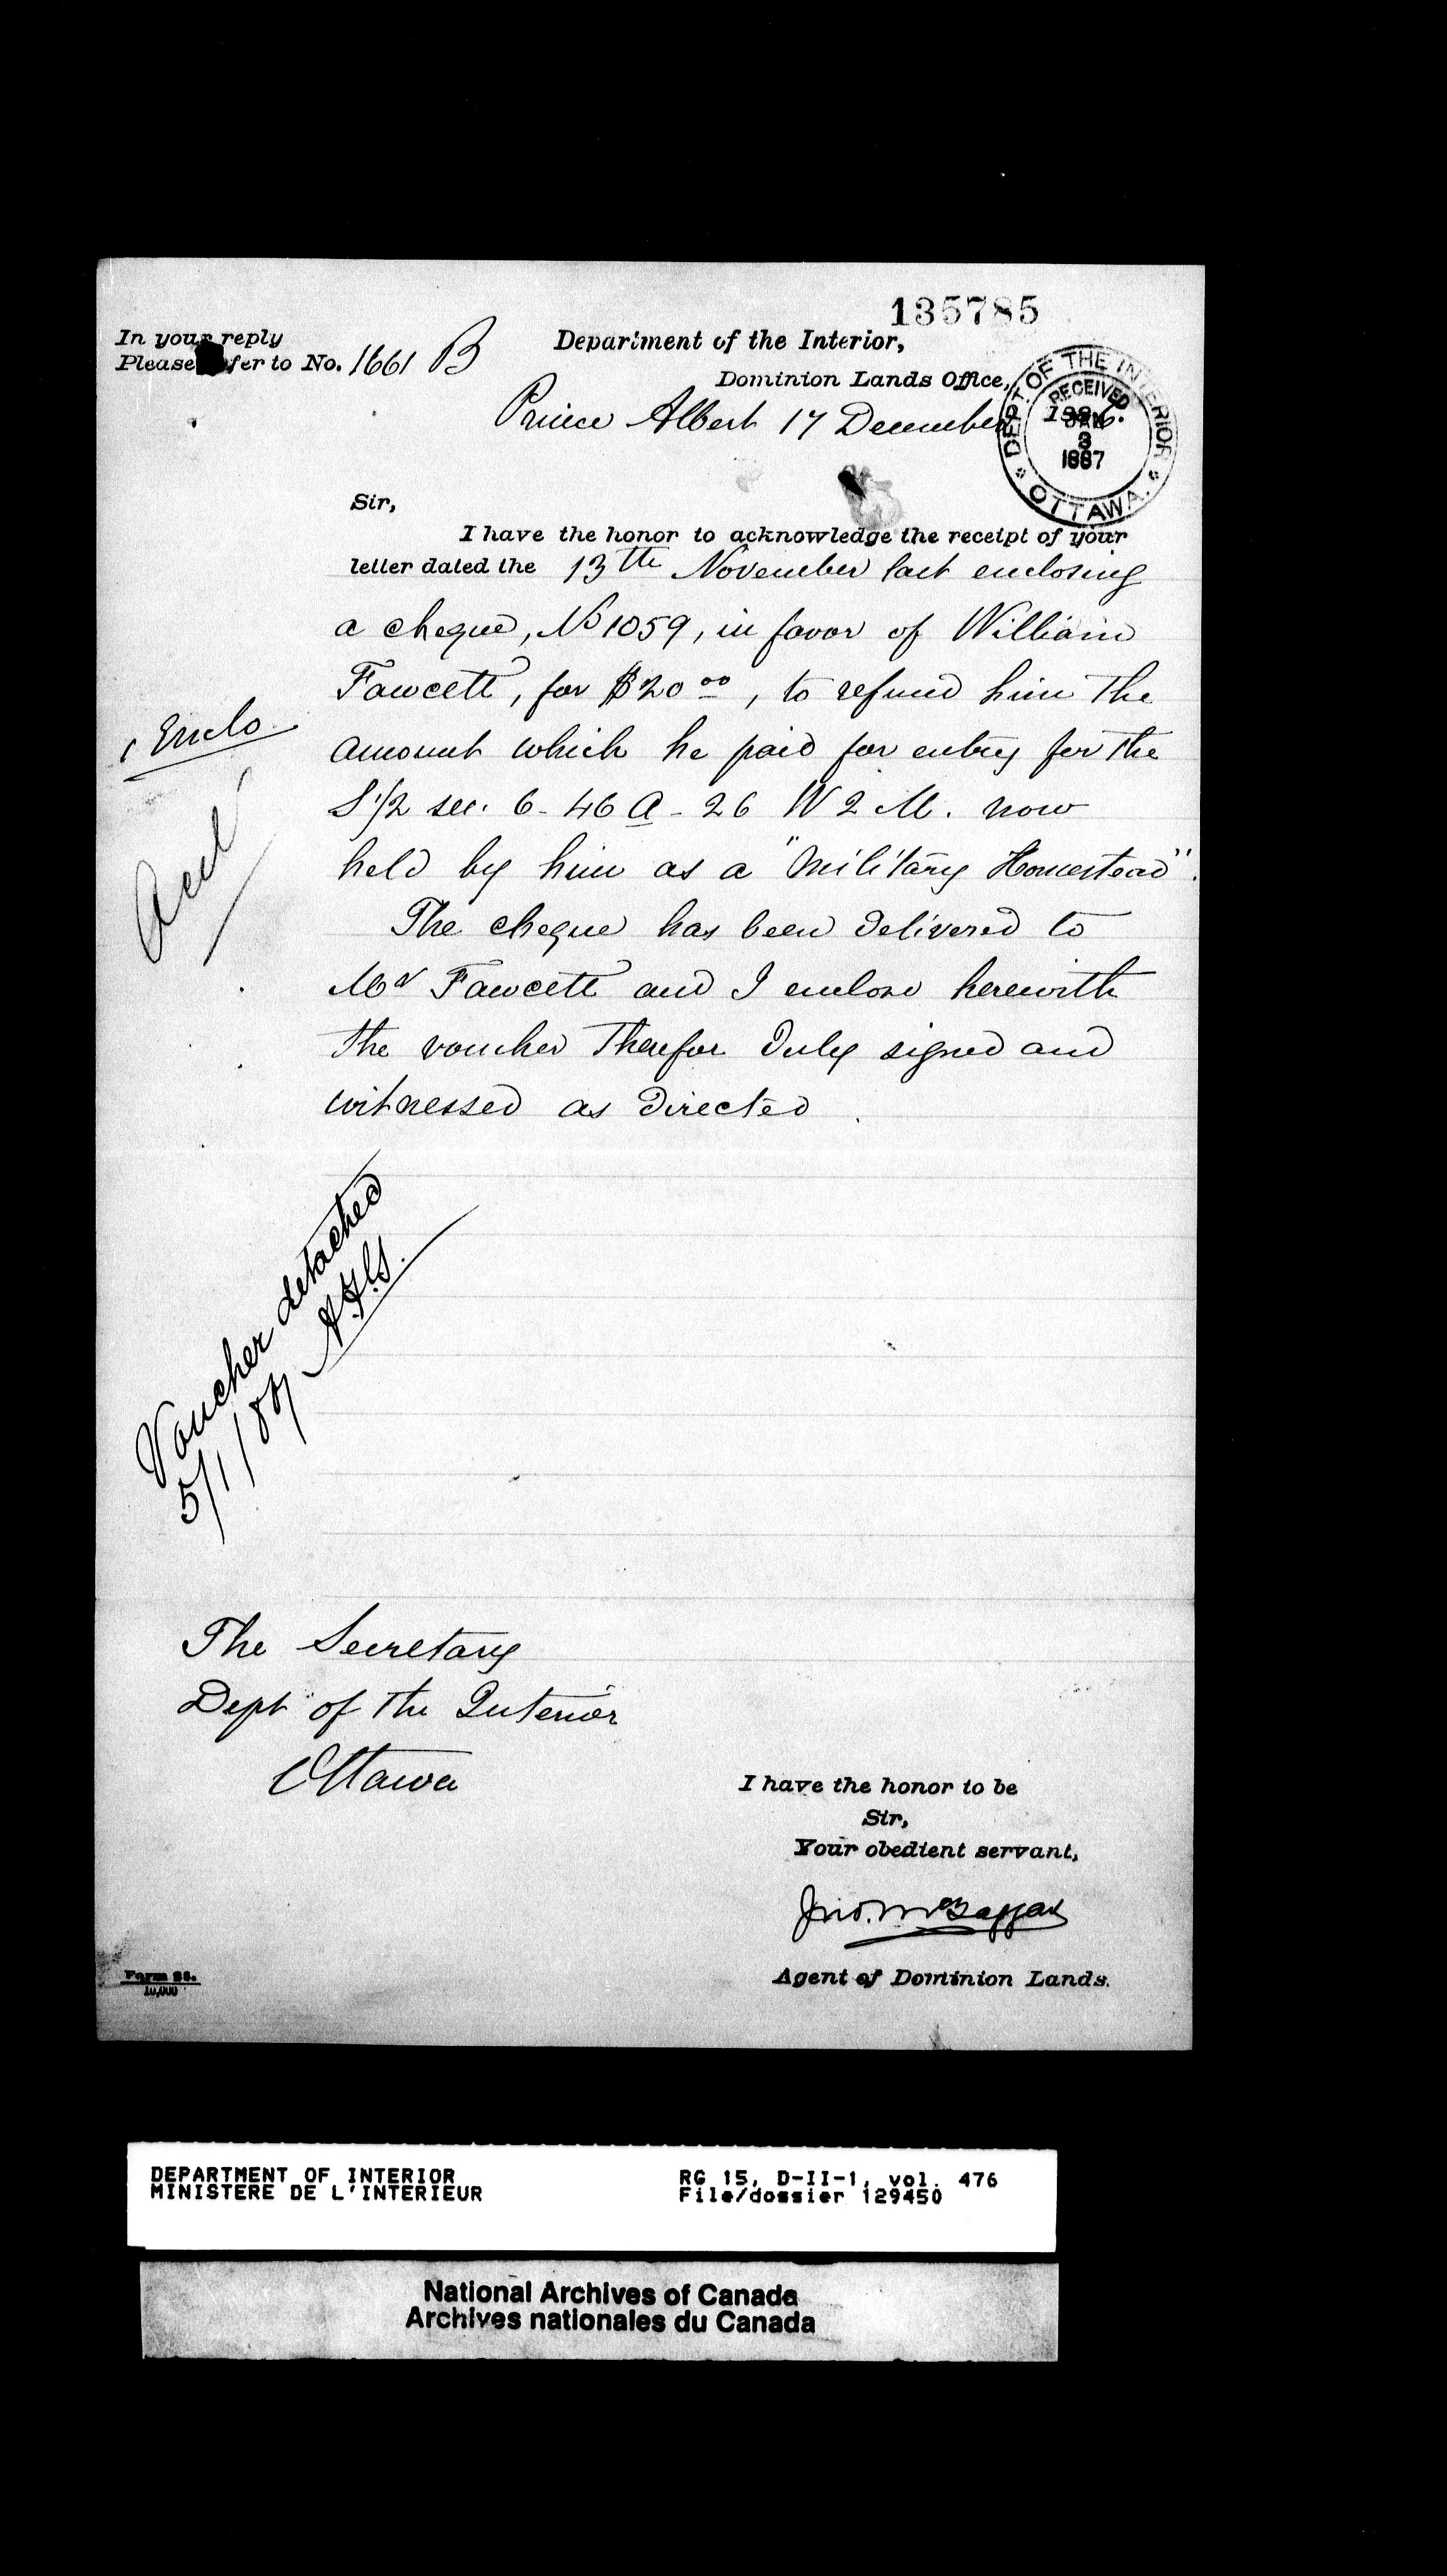 135785
In your reply
Please refer to No. 1661 B
Department of the Interior,
Dominion Lands Office,
Prince Albert 17 December 1886.
DEPT. OF THE INTERIOR
RECEIVED
JAN
3
1887
OTTAWA.
Sir,
I have the honor to acknowledge the receipt of your
letter dated the 13th November last enclosing
a cheque, No 1059, in favor of William
Fawcett, for $20 00, to refund him the
1 Enclo
amount which he paid for entry for the
S 1/2 sec. 6 - 46 A - 26 W 2 M. now
held by him as a "Military Homestead".
The cheque has been delivered to
Mr Fawcett and I enclose herewith
the voucher therefor duly signed and
witnessed as directed.
Voucher detached
5/1/87
The Secretary
Dept of the Interior
Ottawa
I have the honor to be
Sir,
Your obedient servant,
Jno. McTaggart
Agent of Dominion Lands.
Form 26.
10,000
DEPARTMENT OF INTERIOR
MINISTERE DE L'INTERIEUR
RG 15, D-II-1, vol. 476
File/dossier 129450
National Archives of Canada
Archives nationales du Canada